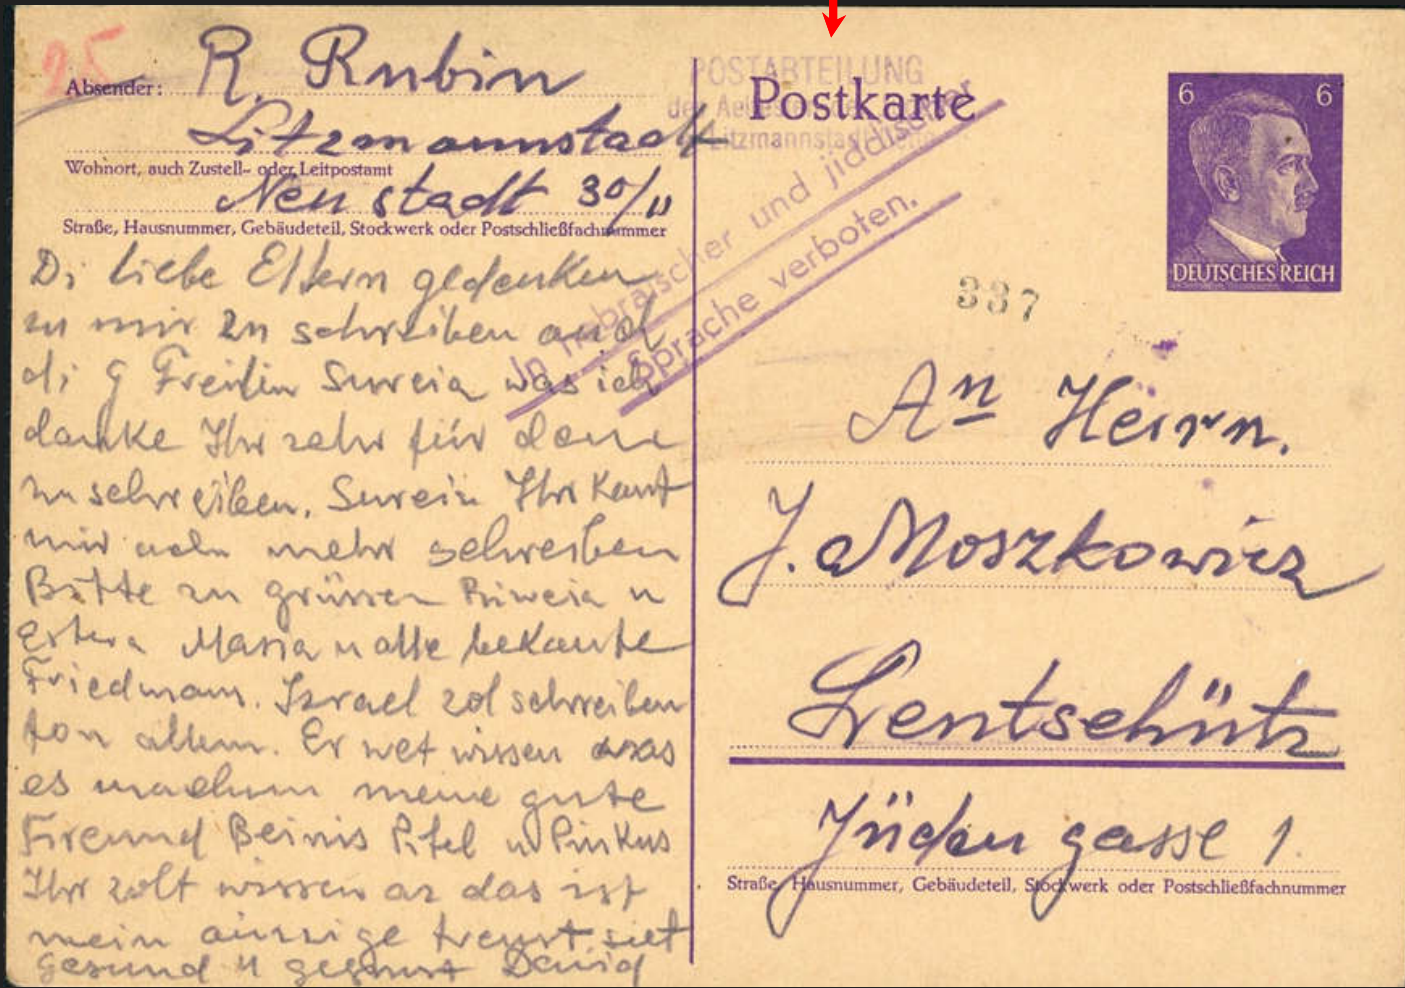 25
Absender: R. Rubin
Litzmannstadt
Wohnort, auch Zustell- oder Leitpostamt
Neustadt 30/11
Straße, Hausnummer, Gebäudeteil, Stockwerk oder Postschließfachnummer
Di liebe Eltern gedenken
zu mir zu schreiben auch
di Freidin Sureia was ich
danke Ihr zehr für
zuschreiben. Surein Ihr Kant
mir noch mehr schreiben
Bitte zu grüssen Riweia u
Estera Mania u alle bekante
Friedmann. Izrael zol schreiben
fon allem. Er wet wissen was
es machen meine gute
Freund Beinis Pifel u Pinkus
Ihr zolt wissen az das ist
mein ainzige treist. seit
gesund u gegrüst David
POSTABTEILUNG
Postkarte
In hebräischer und jiddischer
Sprache verboten.
6 6
DEUTSCHES REICH
337
An Herrn.
J. Moszkowicz
Lentschütz
Jüden gasse 1.
Straße, Hausnummer, Gebäudeteil, Stockwerk oder Postschließfachnummer